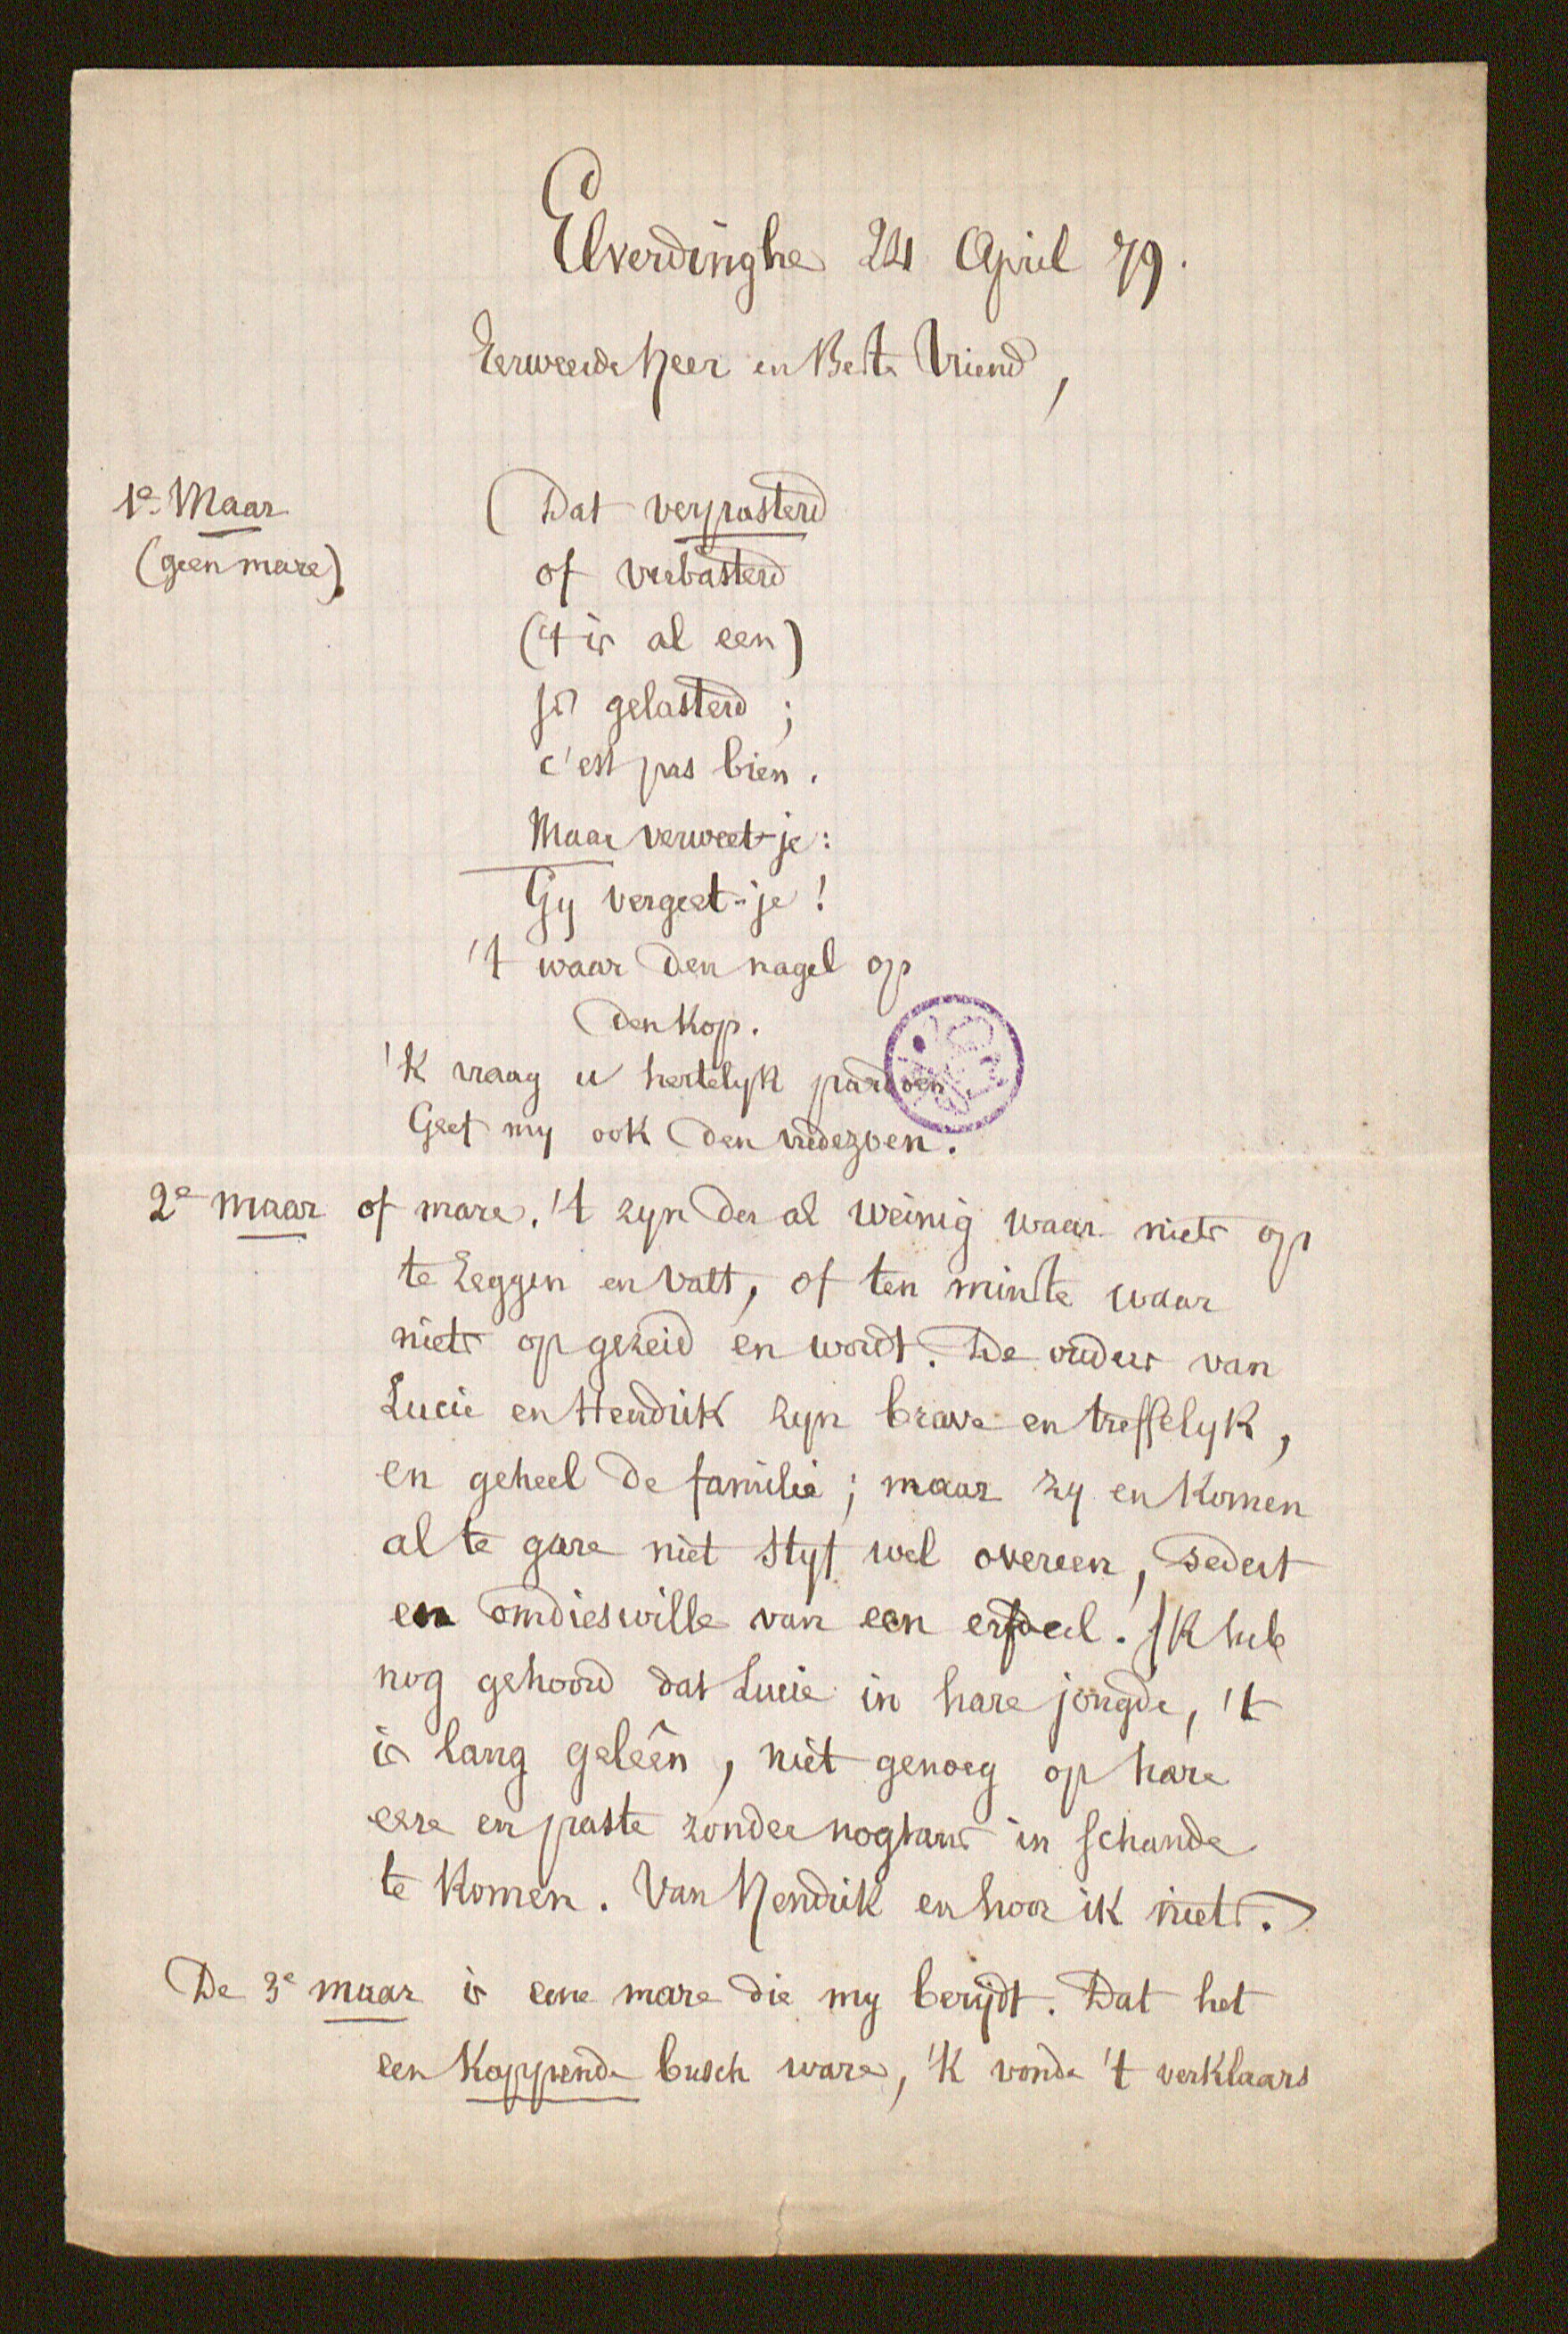 Elverdinghe 24 April 79.
Eerweerde Heer en Beste Vriend,
1e Maar
(geen mare).
(Dat verpasterd
of verbasterd
('t is al een)
is gelasterd;
c'est pas bien.
Maar verweet-je:
Gy vergeet-je!
't waar den nagel op
den kop.
'k vraag u hertelyk pardoen.
Geef my ook den vredezoen.
2e maar of mare. 't zyn der al weinig waar niets op
te zeggen en valt, of ten minste waar
niets op gezeid en wordt. De ouders van
Lucie en Hendrik zyn brave en treffelyk,
en geheel de familie; maar zy en komen
al te gare niet styf wel overeen, sedert
en omdieswille van een erfdeel. Ik heb
nog gehoord dat Lucie in hare jongde, 't
is lang geleên, niet genoeg op hare
eere en paste zonder nogtans in schande
te komen. Van Hendrik en hoor ik niets.
De 3e maar is eene mare die my berydt. Dat het
een koppende busch ware, 'k vonde 't verklaars